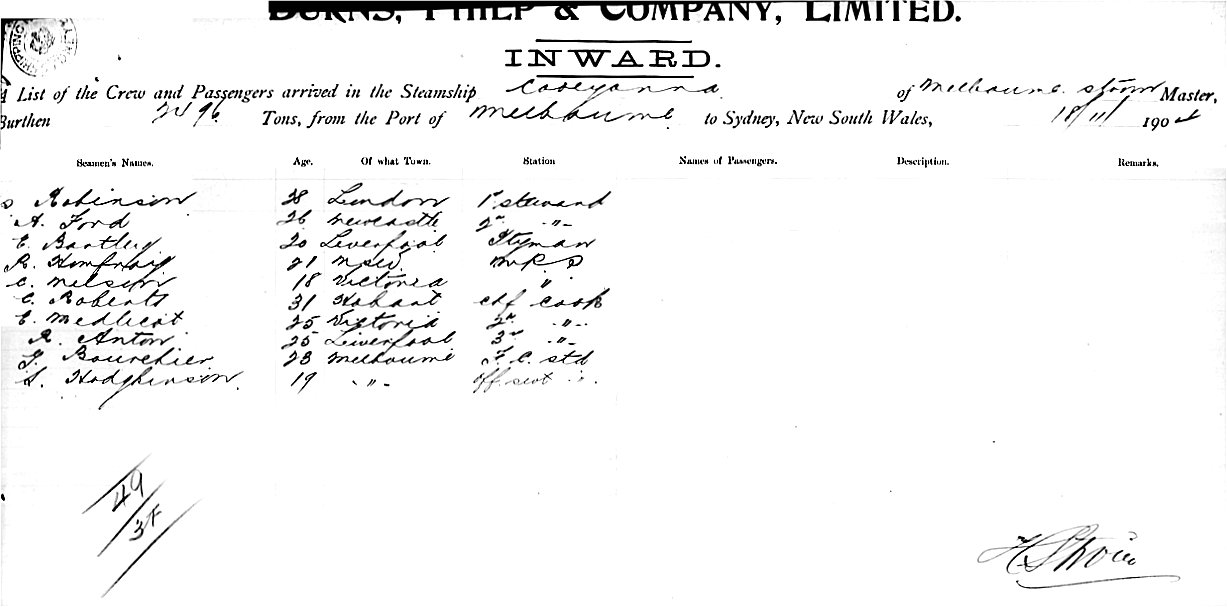 BURNS, PHILP & COMPANY, LIMITED.
INWARD.
A List of the Crew and Passengers arrived in the Steamship Cooeyanna of Melbourne Master,
Burthen 2496 Tons, from the Port of Melbourne to Sydney, New South Wales, 18/11 190
Seamen's Names. Age. Of what Town. Station Names of Passengers. Description. Remarks.
Robinson 28 London 1st steward
A. Ford 26 Newcastle 2n -"-
E. Bartley 20 Liverpool Ptyman
R. Homfray 21 NSW M R S
C. Nelson 18 Victoria "
C. Roberts 31 Hobart chf cook
E. Medlicot 25 Victoria 2n -"-
R. Anton 25 Liverpool 3r -"-
G. Bourchier 23 Melbourne F. C. std
S. Hodgkinson 19 -"- off
49
/3F
H